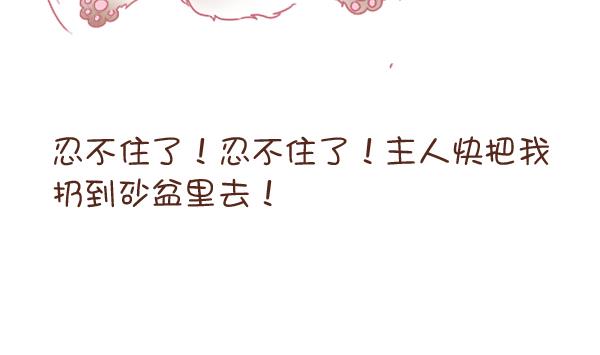 忍不住了！忍不住了！主人快把我
扔到砂盆里去！